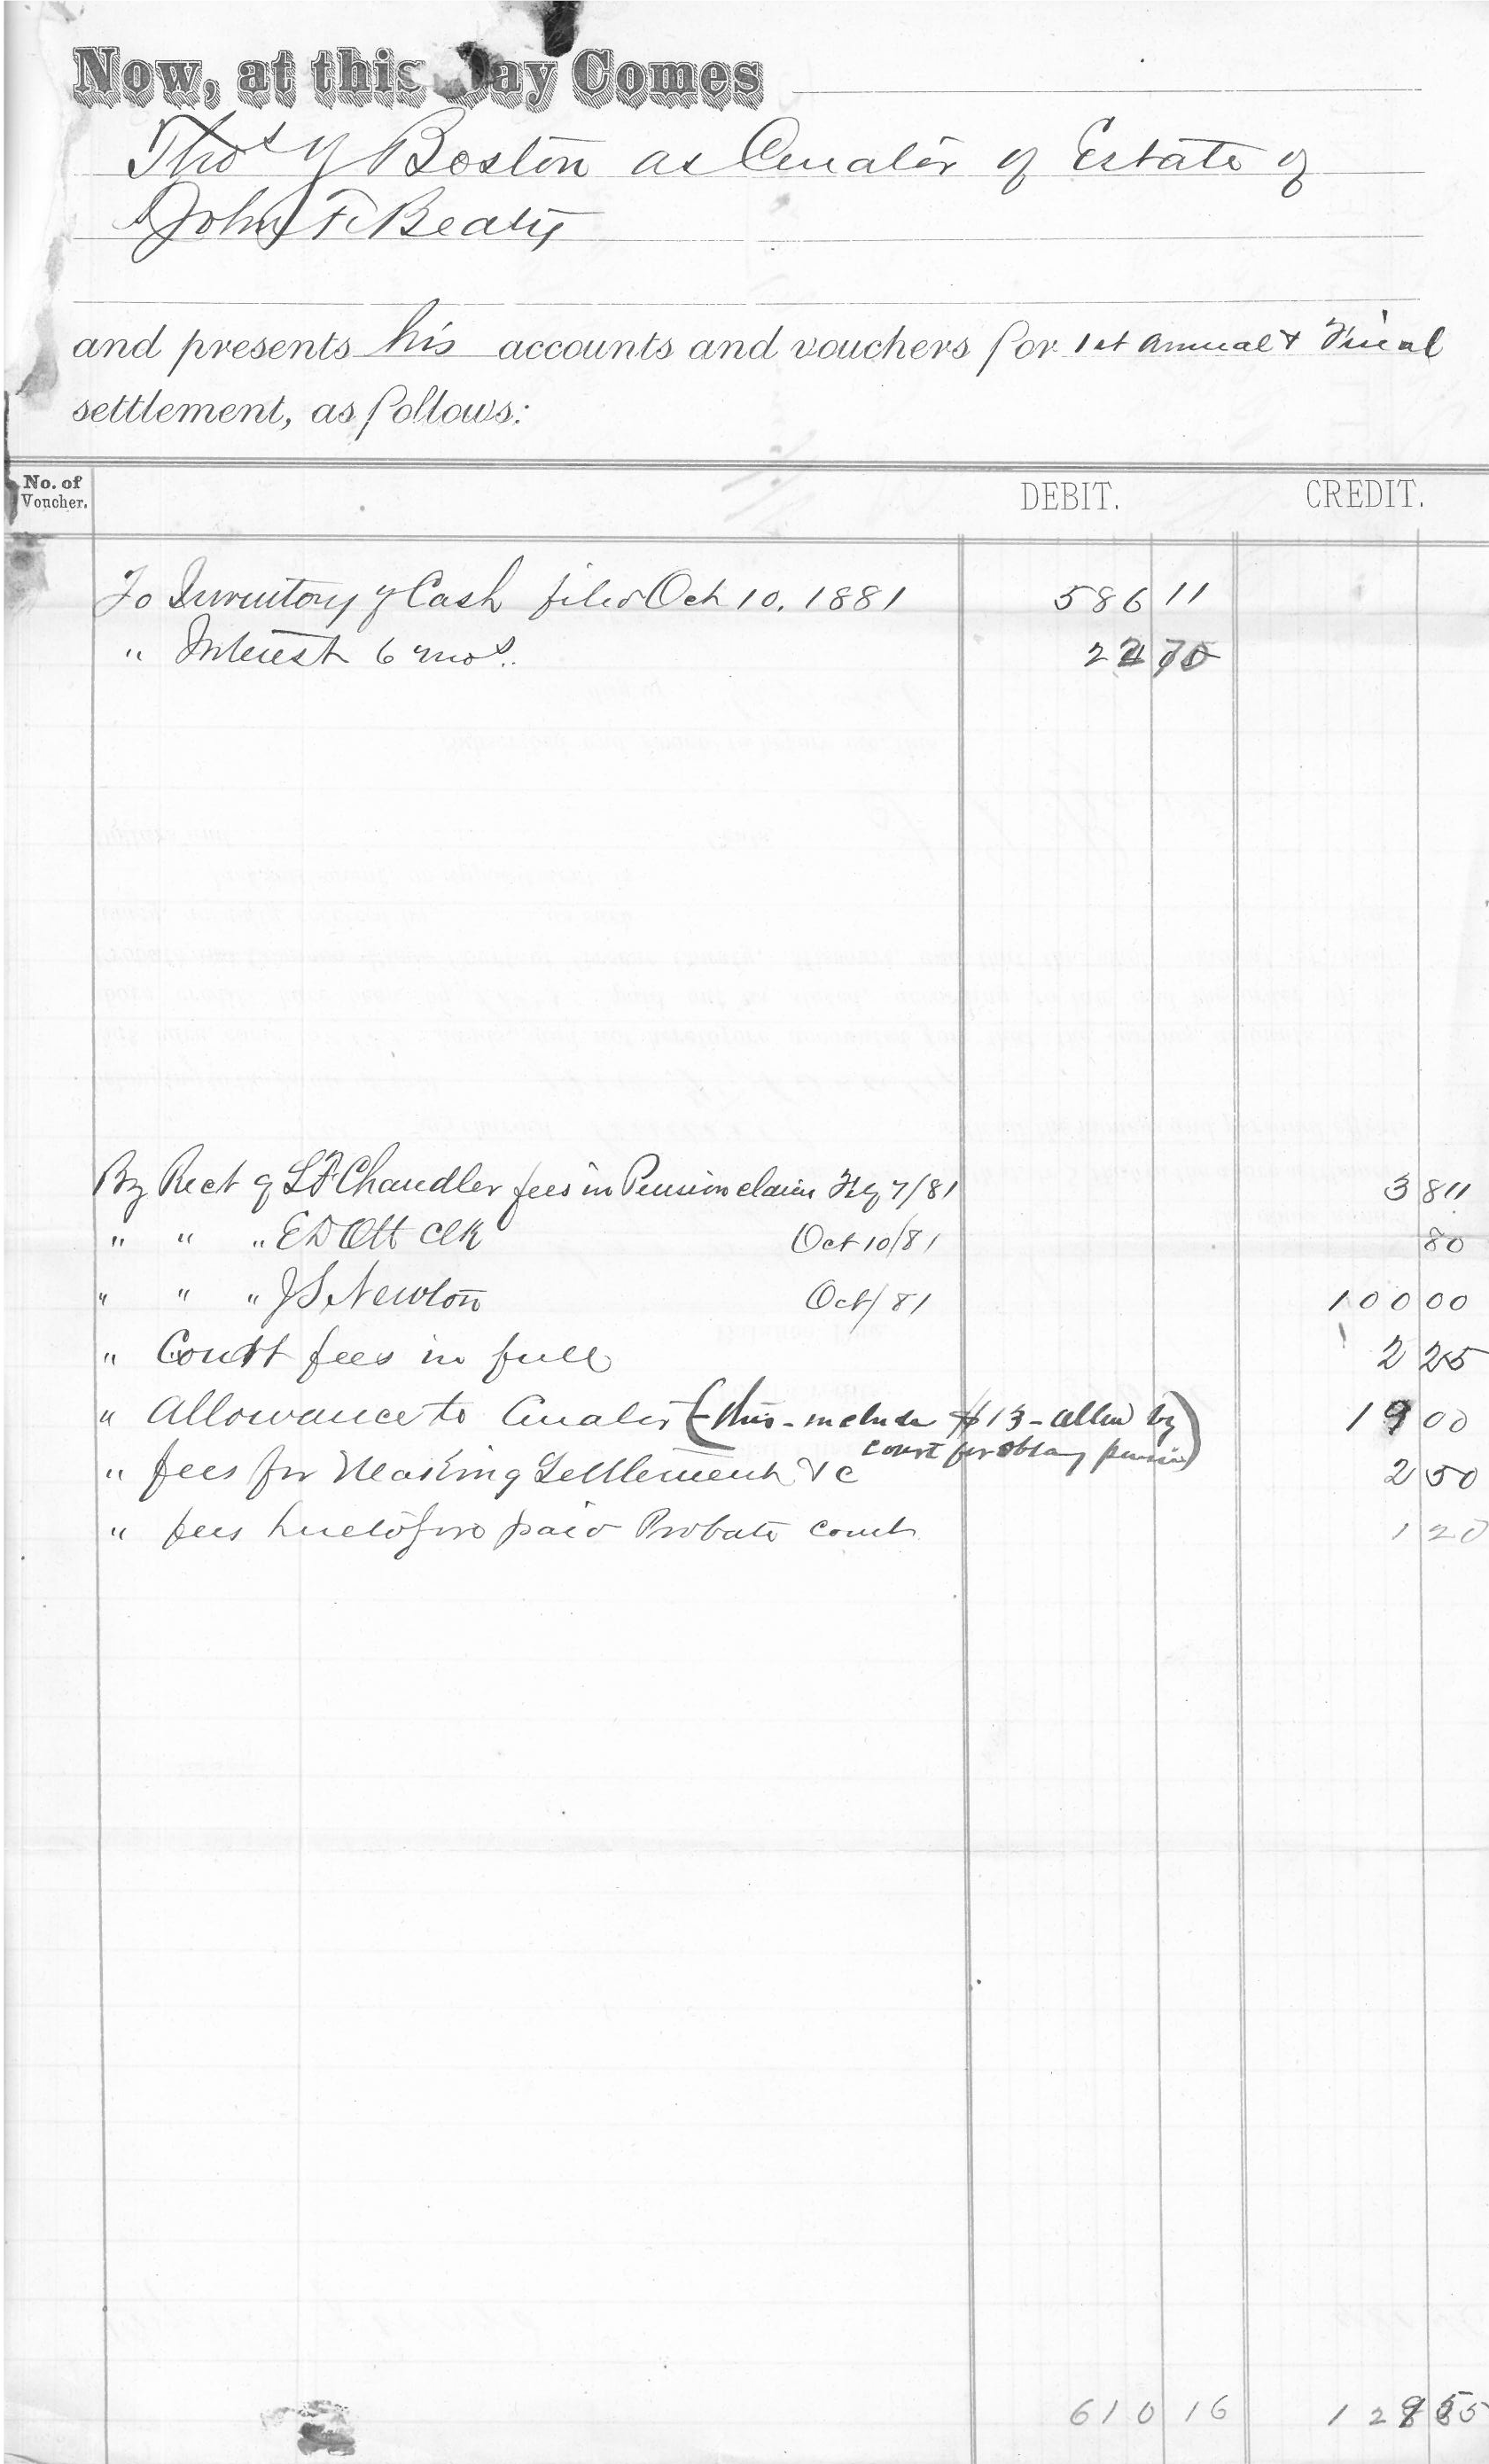 Now, at this Day Comes
Thos Y Boston as Curator of Estate of
John F Beaty
and presents his accounts and vouchers for 1st annual & Final
settlement, as follows:
No. of Voucher. DEBIT. CREDIT.
To Inventory of Cash filed Oct 10. 1881 586 11
" Interest 6 mos.
By Rect of L F Chandler fees in Pension claim 7/81 3 811
" " " E D Ott Clk Oct 10/81 80
" " " J S Newton Oct/81 100 00
" Court fees in full 2 25
" Allowance to Curator (this include $13 - allow by 19 00
court for obtang pension)
" fees for Making Settlement &c 2 50
" fees heretofore paid Probate court 1 20
610 16